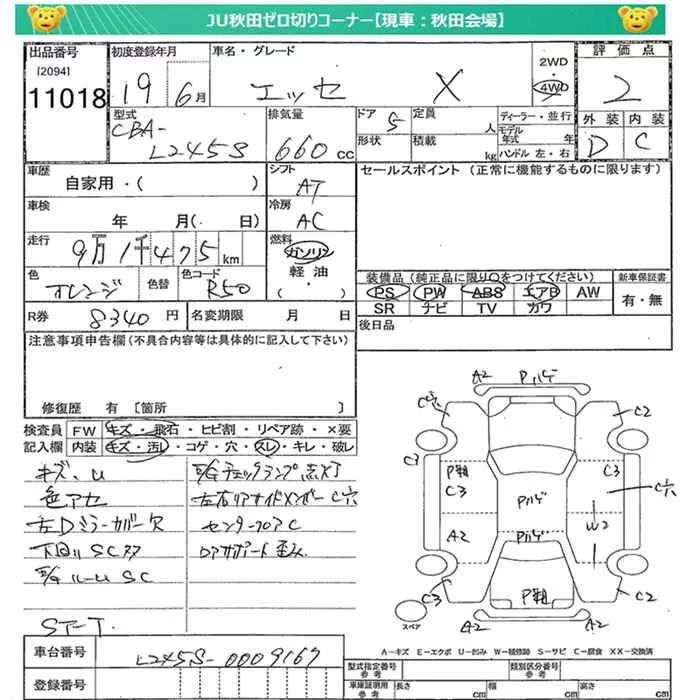 JU秋田ゼロ切りコーナー【現車：秋田会場】
出品番号 初度登録年月 車名・グレード 評価点
[2094]
11018 19 6月 エッセ X 2WD 4WD 2
型式 排気量 ドア 5 定員 人 ディーラー・並行 外装 内装
CBA- 形状 積載 kg モデル年式 年 D C
L245S 660 CC ハンドル 左・右
車歴 シフト セールスポイント (正常に機能するものに限ります)
自家用・( ) AT
車検 冷房
年 月(・ 日) AC
走行 燃料
9万1千475km ガソリン
色 色替 色コード 軽油 装備品 (純正品に限り○をつけてください) 新車保証書
オレンジ R50 ・( ) PS PW ABS エアB AW 有・無
R券 8340円 名変期限 月 日 SR ナビ TV カワ
注意事項申告欄(不具合内容等は具体的に記入して下さい) 後日品
修復歴 有 〔箇所 〕
検査員 FW キズ・飛石・ヒビ割・リペア跡・×要
記入欄 内装 キズ・汚レ・コゲ・穴・スレ・キレ・破レ
キズ、U E/Gチェックランプ点灯
色アセ 左右リアサイドメンバーC穴
左Dミラーカバー欠 センターフロアC
下回りSC穴 歪み
E/GルームSC
ST-T.
A2 Pハゲ
C穴 C2
C3 P剥 C3 C3 C穴
Pハゲ
A2 Pハゲ W2
C3 P剥 C2
スペア A2 A2
A-キズ E-エクボ U-凹み W-補修跡 S-サビ C-腐食 XX-交換済
車台番号 L245S-0009167
登録番号
型式指定番号 参考 類別区分番号 参考
車庫証明用 参考 長さ cm 幅 cm 高さ cm